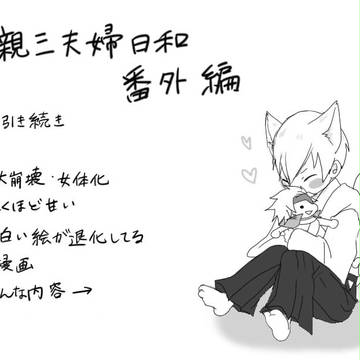 親三夫婦日和
番外編
引き続き
崩壊・女体化
くほど甘い
白い絵が退化してる
漫画
んな内容→